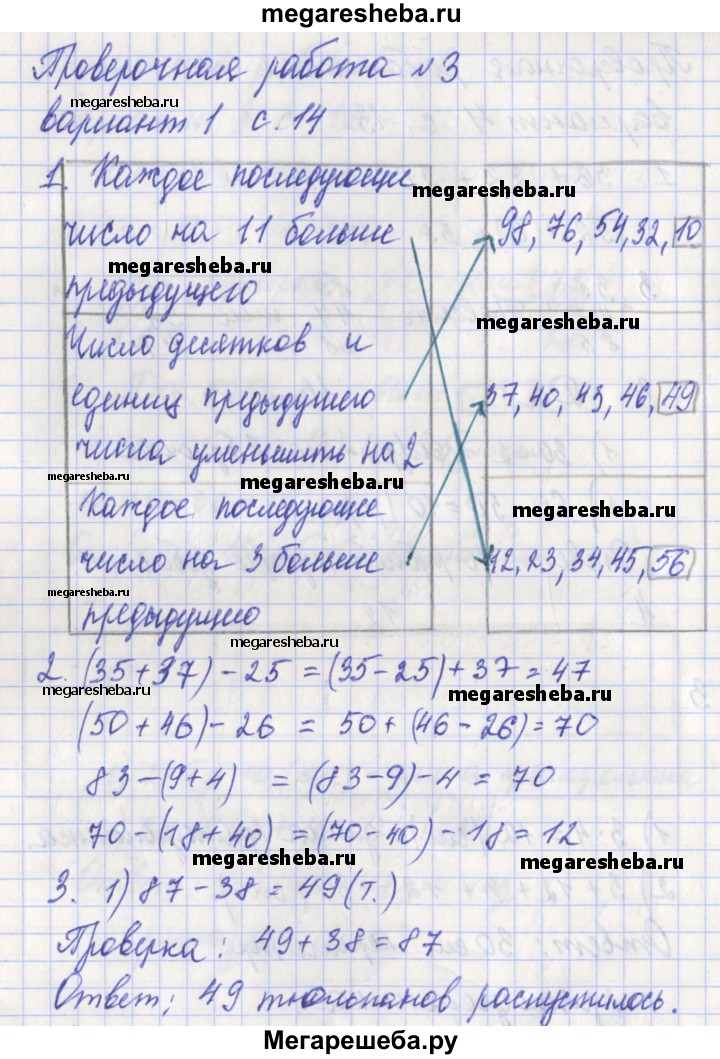 megaresheba.ru
Проверочная работа №3
megaresheba.ru
вариант 1 с. 14
1. Каждое последующие
megaresheba.ru
число на 11 больше
megaresheba.ru
предыдущего
98, 76, 54, 32, 10
megaresheba.ru
Число десятков и
единиц предыдущего
числа уменьшить на 2
37, 40, 43, 46, 49
megaresheba.ru
megaresheba.ru
Каждое последующее
megaresheba.ru
число на 3 больше
предыдущию
12, 23, 34, 45, 56
megaresheba.ru
2. (35+37)-25 = (35-25)+37 = 47
megaresheba.ru
megaresheba.ru
(50+46)-26 = 50+(46-26)=70
83-(9+4) = (83-9)-4 = 70
70-(18+40) = (70-40)-18 = 12
megaresheba.ru
megaresheba.ru
3. 1) 87-38 = 49 (т.)
Проверка: 49+38=87
Ответ: 49 тюльпанов распустилось.
Мегарешеба.ру